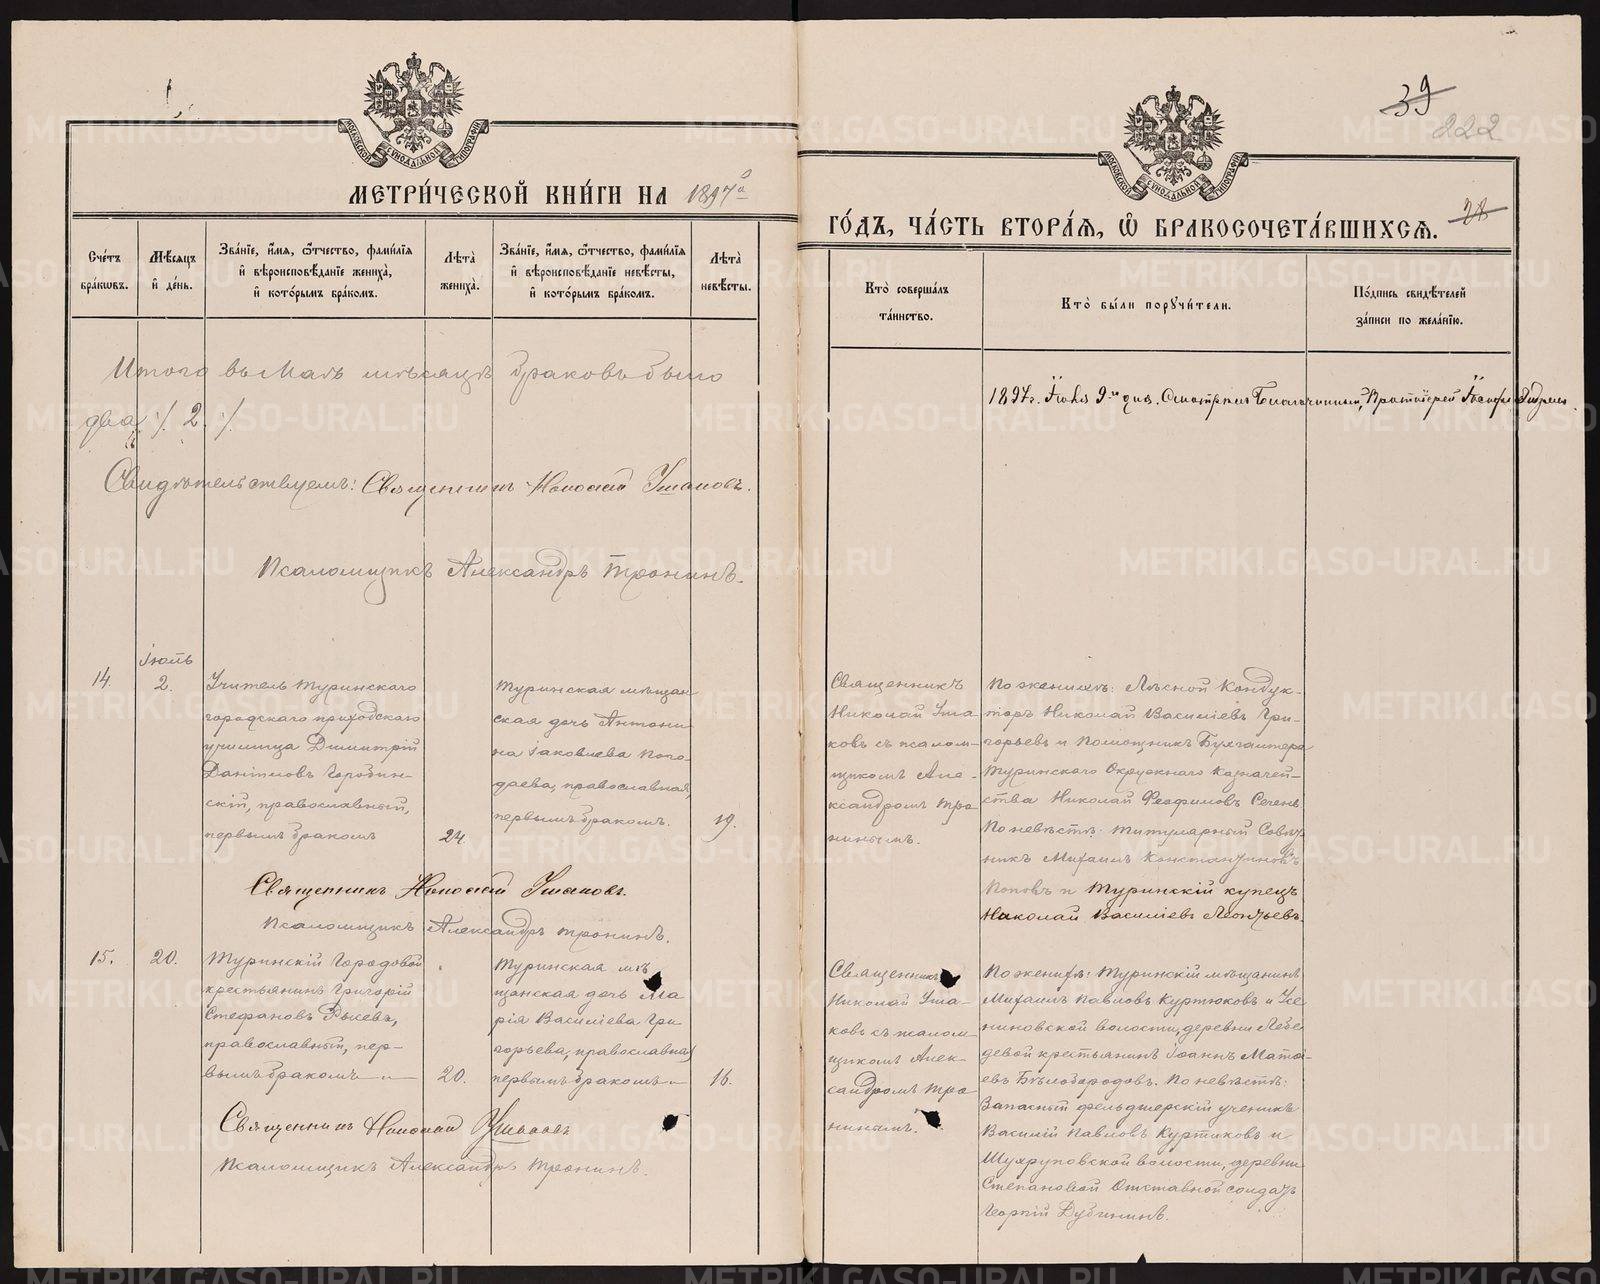 39
222
28
МОСКОВСКОЙ СѴНОДАЛЬНОЙ ТИПОГРАФІИ
МОСКОВСКОЙ СѴНОДАЛЬНОЙ ТИПОГРАФІИ
МЕТРИ́ЧЕСКОЙ КНИ́ГИ НА 1897 го
ГО́ДЪ, ЧА́СТЬ ВТОРА́Я, Ѿ БРАКОСОЧЕТА́ВШИХСЯ.
Сче́тъ
бра́кωвъ.
Мѣ́сяцъ
и҆ де́нь.
Зва́нїе, и҆́мя, ѻ҆́тчество, фами́лїя
и҆ вѣроисповѣ́данїе жениха̀,
и҆ кото́рымъ бра́комъ.
Лѣ́та
жениха̀.
Зва́нїе, и҆́мя, ѻ҆́тчество, фами́лїя
и҆ вѣроисповѣ́данїе невѣ́сты,
и҆ кото́рымъ бра́комъ.
Лѣ́та
невѣ́сты.
Кто̀ соверша́лъ
та́инство.
Кто̀ бы́ли порꙋчи́тели.
По́дпись свидѣ́телей
за́писи по жела́нїю.
Итого въ Маѣ мѣсяцѣ браковъ было
два ./. 2 ./.
Свидѣтельствуемъ: Священникъ Николай Ушаковъ.
Псаломщикъ Александръ Тронинъ.
1897 г. дня. Смотрѣлъ Благочинный, Протоіерей
Іюль
14.
2.
Учитель Туринскаго
городскаго приходскаго
училища Димитрій
Даніиловъ Горбин-
скій, православный,
первымъ бракомъ
24.
Туринская мѣщан
ская дочь Антони-
на Іаковлева
православная,
первымъ бракомъ.
19.
Священникъ
Николай Уша-
ковъ съ псалом-
щикомъ Але-
ксандромъ Тро-
нинымъ.
По женихѣ: Лѣсной Кондук-
торъ Николай Василіевъ Гри-
горьевъ и Помощникъ Бухгалтера
Туринскаго Окружнаго Казначей-
ства Николай Феофиловъ
По невѣстѣ: Титулярный Совѣт
никъ Михаилъ Константиновъ
Поповъ и Туринскій купецъ
Николай Василіевъ Леонтьевъ.
Священникъ Николай Ушаковъ.
Псаломщикъ Александръ Тронинъ.
15.
20.
Туринскій Городовой
крестьянинъ Григорій
Стефановъ
православный, пер-
вымъ бракомъ
20.
Туринская мѣ
щанская дочь Ма
рія Василіева Гри
горьева, православная,
первымъ бракомъ
16.
Священникъ
Николай Уша-
ковъ съ псалом-
щикомъ Алек-
сандромъ Тро-
нинымъ.
По женихѣ: Туринскій мѣщанинъ
Михаилъ Павловъ Куртюковъ и Усе
ниновской волости, деревни Лебе
девой крестьянинъ Іоаннъ Матѳі-
евъ Бѣлобородовъ. По невѣстѣ:
Запасный фельдшерскій ученикъ
Василій Павловъ Куртиковъ и
Шухруповской волости, деревни
Степановой Отставной солдатъ
Георгій Дубининъ.
Священникъ Николай Ушаковъ.
Псаломщикъ Александръ Тронинъ.
METRIKI.GASO-URAL.RU